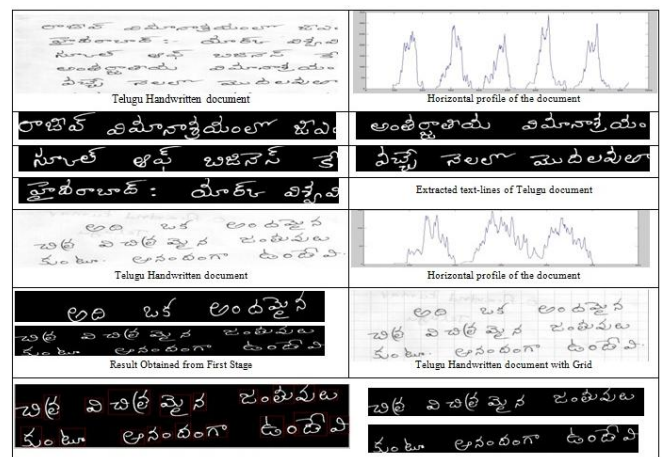 రాజీవ్ విమానాశ్రయంలో
హైదరాబాద్ :
స్కూల్ ఆఫ్ బిజినెస్
అంతర్జాతీయ విమానాశ్రయం
వచ్చే నెలలో మొదలవుతా
Telugu Handwritten document
Horizontal profile of the document
రాజీవ్ విమానాశ్రయంలో
అంతర్జాతీయ విమానాశ్రయం
స్కూల్ ఆఫ్ బిజినెస్
వచ్చే నెలలో మొదలవుతా
హైదరాబాద్ :
Extracted text-lines of Telugu document
అది ఒక అందమైన
చిత్ర విచిత్రమైన జంతువులు
ఆనందంగా ఉండేవి
Telugu Handwritten document
Horizontal profile of the document
అది ఒక అందమైన
చిత్ర విచిత్రమైన జంతువులు
ఆనందంగా ఉండేవి
Result Obtained from First Stage
అది ఒక అందమైన
చిత్ర విచిత్రమైన జంతువులు
ఆనందంగా ఉండేవి
Telugu Handwritten document with Grid
చిత్ర విచిత్రమైన జంతువులు
ఆనందంగా ఉండేవి
చిత్ర విచిత్రమైన జంతువులు
ఆనందంగా ఉండేవి